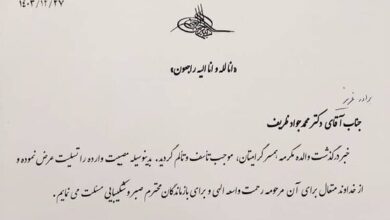 ۱۴۰۳/۱۲/۲۷
«انا لله و انا الیه راجعون»
برادر عزیز
جناب آقای دکتر محمد جواد ظریف
خبر درگذشت والده مکرمه همسر گرامیتان، موجب تأسف و تألم گردید. بدینوسیله مصیبت وارده را تسلیت عرض نموده و
از خداوند متعال برای آن مرحومه رحمت واسعه الهی و برای بازماندگان محترم صبر و شکیبایی مسئلت می نمایم.